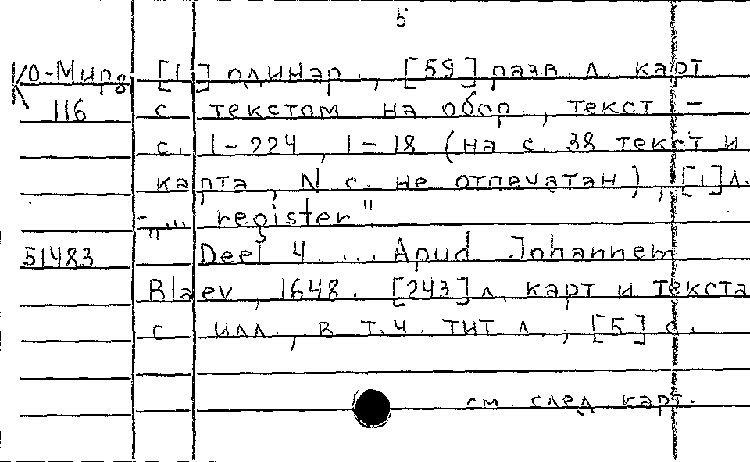 5
КО-Мир. [1] одинар., [59] разв. л. карт
116 с текстом на обор., текст -
с. 1-224, 1-18 (на с. 38 текст и
карта, N с. не отпечатан), [1] л.
"register"
51483 Deel 4 ... Apud Johannem
Blaev, 1648. [243] л. карт и текста
с илл., в т.ч. тит. л., [5] с.
см. след. карт.